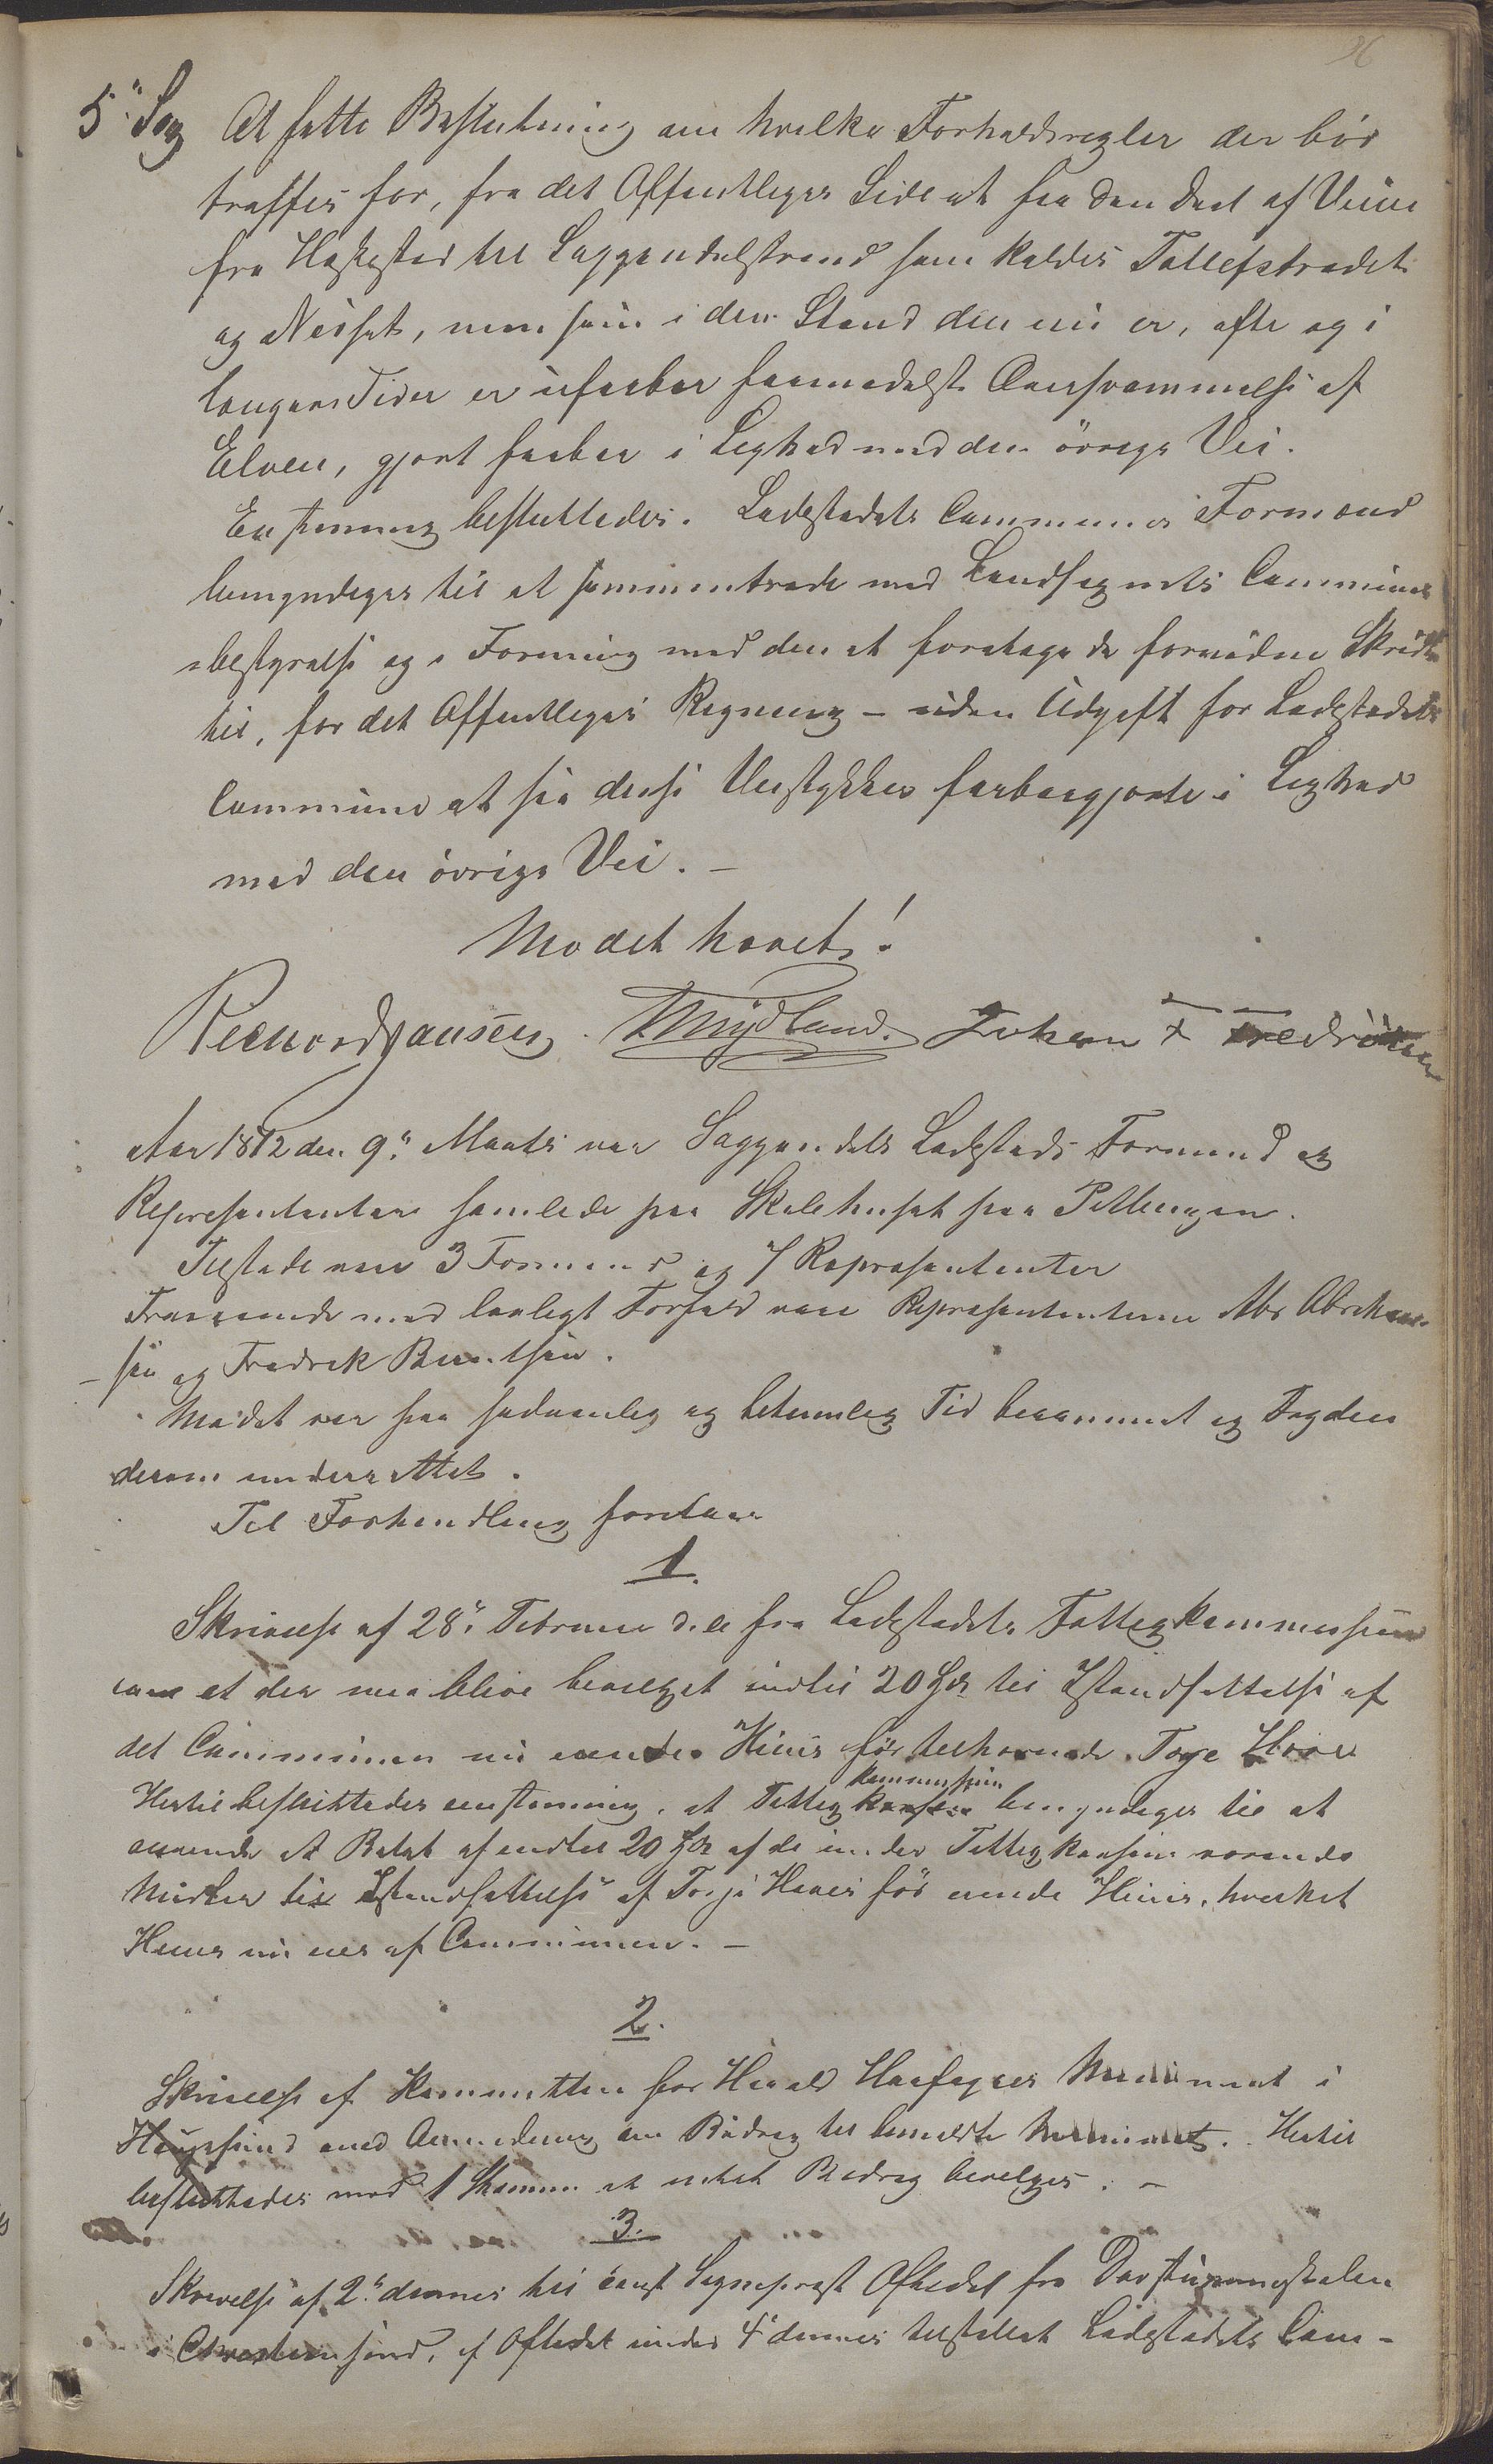 96
5te Sag At fatte Beslutning om hvilke Forholdsregler der bör
træffes for, fra det Offentliges Side at faa den Deel af Veien
fra Haskestad til Soggendalstrand som kaldes Tollefstrædet
og Næsset, men som i den Stand den nu er, ofte og i
længere Tider er ufarbar formedelst Oversvømmelse af
Elven, gjort farbar i Lighed med den övrige Vei.
Enstemmig besluttedes. Ladestedets Communes Formænd
bemyndiges til at sammentræde med Landsognets Commune
bestyrelse og i Forening med den at foretage de fornødne Skridt
til, for det Offentliges Regning – uden Udgift for Ladestedets
Commune at faa disse Veistykker farbargjorte i Lighed
med den övrige Vei. –
Mødet hævet!
Richard Jansen. TMydland. Johan F Fredriksen
Aar 1872 den 9de Marts var Soggendals Ladesteds Formænd og
Repræsentantere samlede paa Skolehuset paa
Tilstede vare 3 Formænd og 7 Repræsentanter
Fraværende med lovligt Forfald vare Repræsentanterne Abr Abraham
-sen og Fredrik Berntsen.
Mødet var paa sædvanlig og betimelig Tid berammet og Fogden
derom underrettet.
Til Forhandling foretoges
1.
Skrivelse af 28de Februar d.A. fra Ladestedets Fattigkommission
om at der maa blive bevilget indtil 20 Spd til Istandsættelse af
det Communen nu eiende Huus för tilhørende Tarje Hove
Hertil besluttedes enstemmig, at Fattig kommission bemyndiges til at
anvende et Beløb af indtil 20 Spd af de under Fattigkassen værende
Midler til Istandsættelse af Tarje Hoves för eiende Huus, hvilket
Huus nu eies af Communen. –
2.
Skrivelse af Kommitteen for Harald Haarfagres Monument i
Haugesund med Anmodning om Bidrag til bemeldte Monument. Hertil
besluttedes mod 1 Stemme at intet Bidrag bevilges. –
3.
Skrivelse af 2den dennes til const Sognepræst Oftedal fra Døvstummeskolen
i Christiansand, af Oftedal under 4de dennes tilstillet Ladestedets Com-